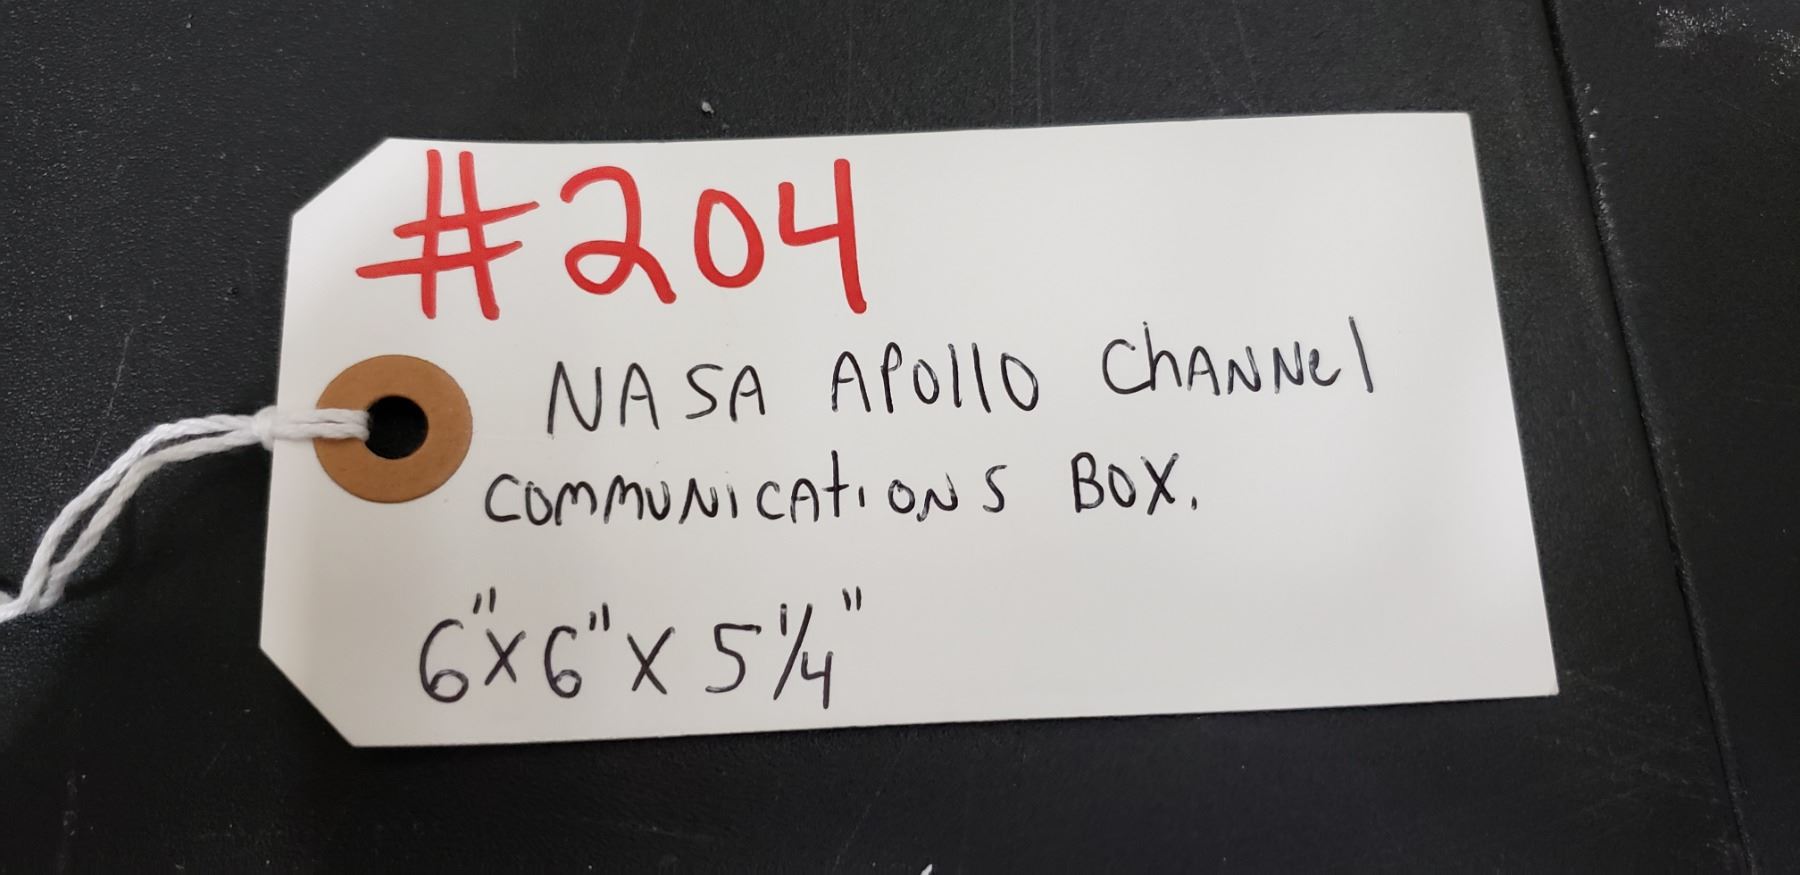 #204
NASA APOllO ChANNel
COMMUNICAtiONS BOX.
6"x6"x 5 1/4"